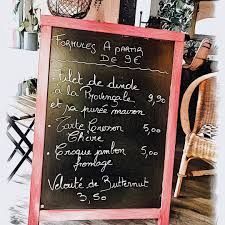 FORMULES A PARTIR
DE 9€
- Filet de dinde
à la Provençale 9,90
et sa purée maison
- Tarte Cresson 5,00
Chèvre
- Croque jambon 5,00
fromage
Velouté de Butternut
3,50